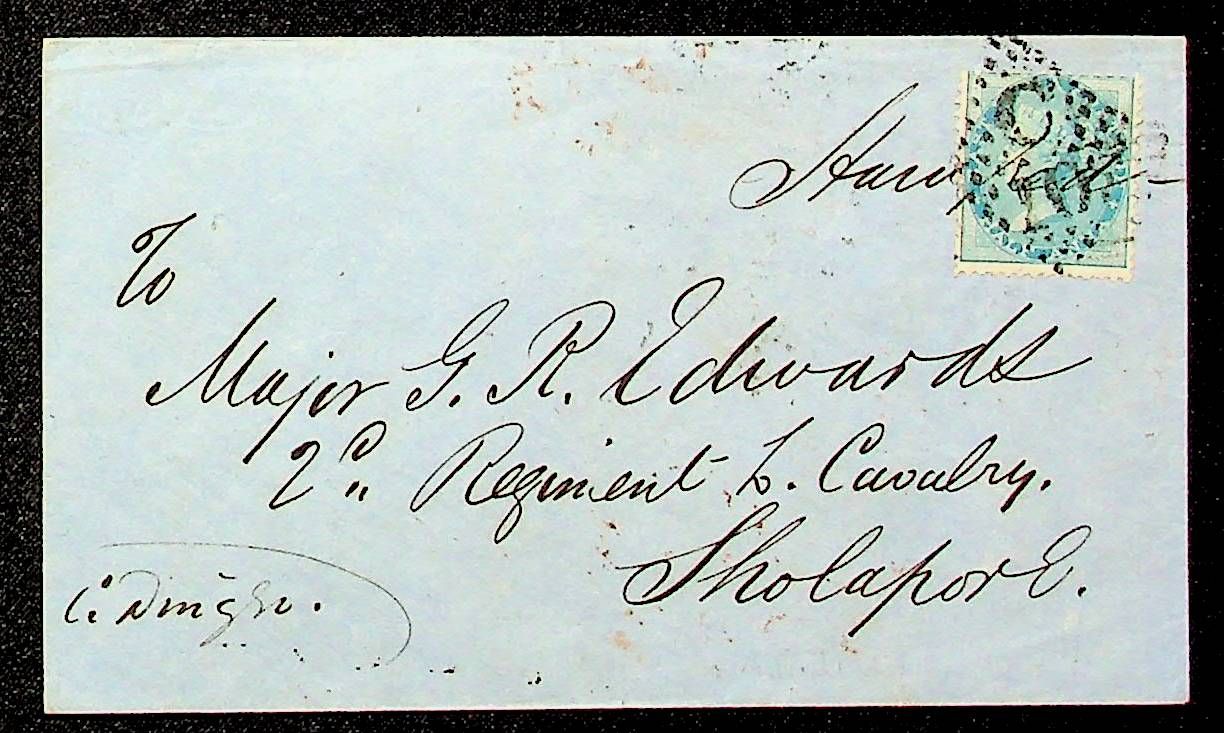 To
Major G. R. Edwards
2d Regiment L. Cavalry.
Sholapore.